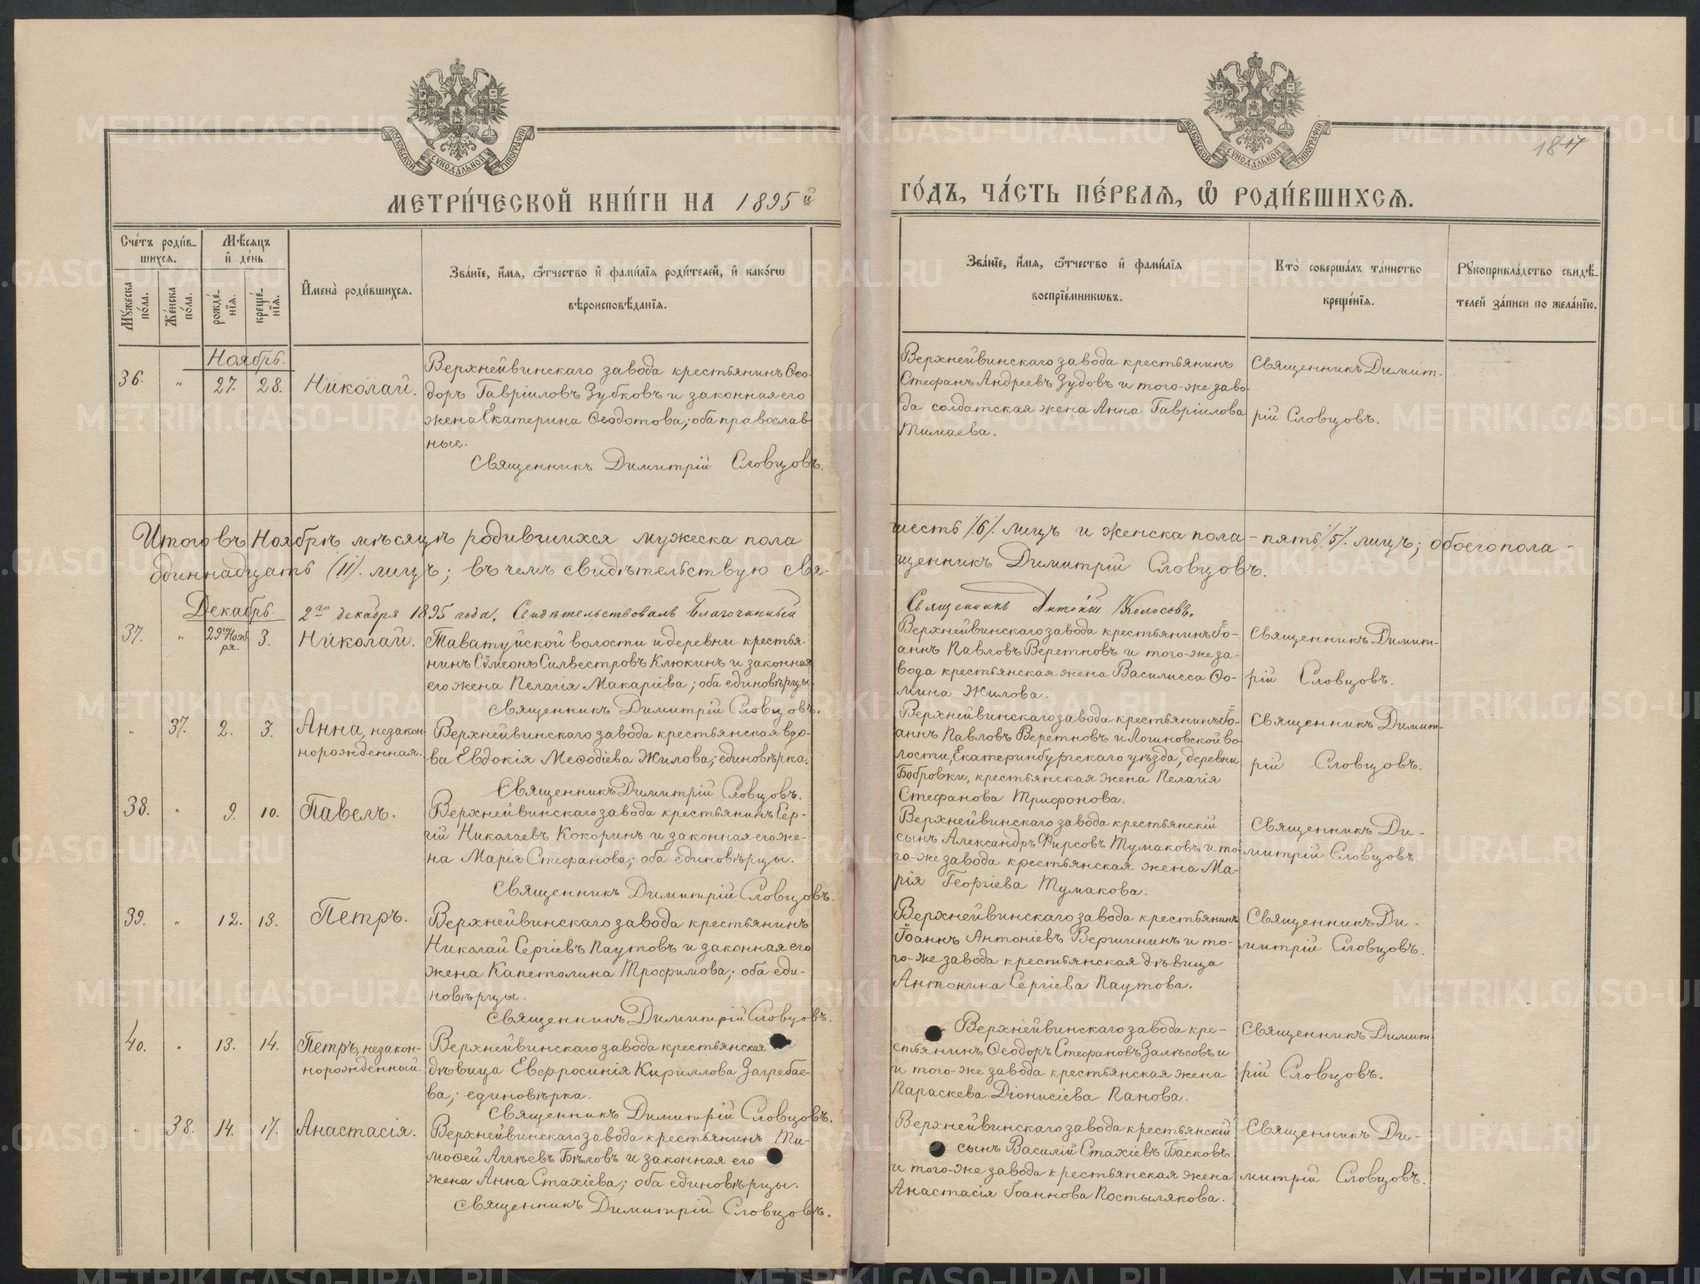 МЕТРИ́ЧЕСКОЙ КНИ́ГИ НА 1895 й
ГО́ДЪ, ЧА́СТЬ ПЕ́РВАЯ, Ѽ РОДИ́ВШИХСЯ.
184
Сче́тъ роди́в-
шихся.
Му́жеска по́ла.
Же́нска по́ла.
Мѣ́сяцъ
и де́нь.
рожде́-
нїя.
креще́-
нїя.
И҆мена̀ роди́вшихся.
Зва́нїе, и҆́мя, ѻ҆́тчество и҆ фами́лїя роди́телей, и҆ како́гѡ
вѣроисповѣ́данїя.
Зва́нїе, и҆́мя, ѻ҆́тчество и҆ фами́лїя
воспрїе́мникѡвъ.
Кто̀ соверша́лъ та́инство
креще́нїя.
Рꙋкоприкла́дство свидѣ́-
телей за́писи по жела́нїю.
Ноябрь.
36.
"
27.
28.
Николай.
Верхнейвинскаго завода крестьянинъ Ѳео-
доръ Гавріиловъ Зубковъ и законная его
жена Екатерина Ѳеодотова; оба православ-
ные.
Священникъ Димитрій Словцовъ.
Верхнейвинскаго завода крестьянинъ
Стефанъ Андреевъ Зудовъ и того-же заво-
да солдатская жена Анна Гавріилова
Священникъ Димит-
рій Словцовъ.
Итого въ Ноябрѣ мѣсяцѣ родившихся мужеска пола
шесть /6/. лицъ и женска пола - пять /5/. лицъ; обоего пола -
одиннадцать /11/. лицъ; въ чемъ свидѣтельствую Свя-
щенникъ Димитрій Словцовъ.
Декабрь
2го декабря 1895 года, Свидѣтельствовалъ Благочинный
Священникъ Антоній Колосовъ.
37.
"
29го Нояб
ря.
3.
Николай.
Таватуйской волости и деревни крестья-
нинъ Сѵмеонъ Силвестровъ Клюкинъ и законная
его жена Пелагія Макаріева; оба единовѣрцы
Священникъ Димитрій Словцовъ.
Верхнейвинскаго завода крестьянинъ Іо-
аннъ Павловъ Веретновъ и того-же за-
вода крестьянская жена Василисса Ѳо-
мина Жилова.
Священникъ Димит-
рій Словцовъ.
"
37.
2.
3.
Анна, незакон-
норожденная.
Верхнейвинскаго завода крестьянская вдо-
ва Евдокія Меѳодіева Жилова; единовѣрка.
Священникъ Димитрій Словцовъ.
Верхнейвинскаго завода крестьянинъ Іо-
аннъ Павловъ Веретновъ и Логиновской во-
лости, Екатеринбургскаго уѣзда, деревни
Бобровки, крестьянская жена Пелагія
Стефанова Трифонова.
Священникъ Димит-
рій Словцовъ.
38.
"
9.
10.
Павелъ.
Верхнейвинскаго завода крестьянинъ Сер-
гій Николаевъ Кокоринъ и законная его же-
на Марія Стефанова; оба единовѣрцы.
Священникъ Димитрій Словцовъ.
Верхнейвинскаго завода крестьянскій
сынъ Александръ Фирсовъ Тумаковъ и то-
го-же завода крестьянская жена Ма-
рія Георгіева Тумакова.
Священникъ Ди-
митрій Словцовъ.
39.
"
12.
13.
Петръ.
Верхнейвинскаго завода крестьянинъ
Николай Сергіевъ Паутовъ и законная его
жена Капетолина Трофимова; оба еди-
новѣрцы.
Священникъ Димитрій Словцовъ.
Верхнейвинскаго завода крестьянинъ
Іоаннъ Антоніевъ Вершининъ и то-
го-же завода крестьянская дѣвица
Антонина Сергіева Паутова.
Священникъ Ди-
митрій Словцовъ.
40.
"
13.
14.
Петръ, незакон-
норожденный.
Верхнейвинскаго завода крестьянская
дѣвица Евфросинія Кириллова Загребае-
ва; единовѣрка.
Священникъ Димитрій Словцовъ.
Верхнейвинскаго завода кре-
стьянинъ Ѳеодоръ Стефановъ Залѣсовъ и
и того-же завода крестьянская жена
Параскева Діонисіева Панова.
Священникъ Димит
рій Словцовъ.
"
38.
14.
17.
Анастасія.
Верхнейвинскаго завода крестьянинъ Ти-
моѳей Алѣевъ Бѣловъ и законная его
жена Анна Стахіева; оба единовѣрцы.
Священникъ Димитрій Словцовъ.
Верхнейвинскаго завода крестьянскій
сынъ Василій Стахіевъ Басковъ
и того-же завода крестьянская жена
Анастасія Іоаннова Постылякова.
Священникъ Ди-
митрій Словцовъ.
METRIKI.GASO-URAL.RU